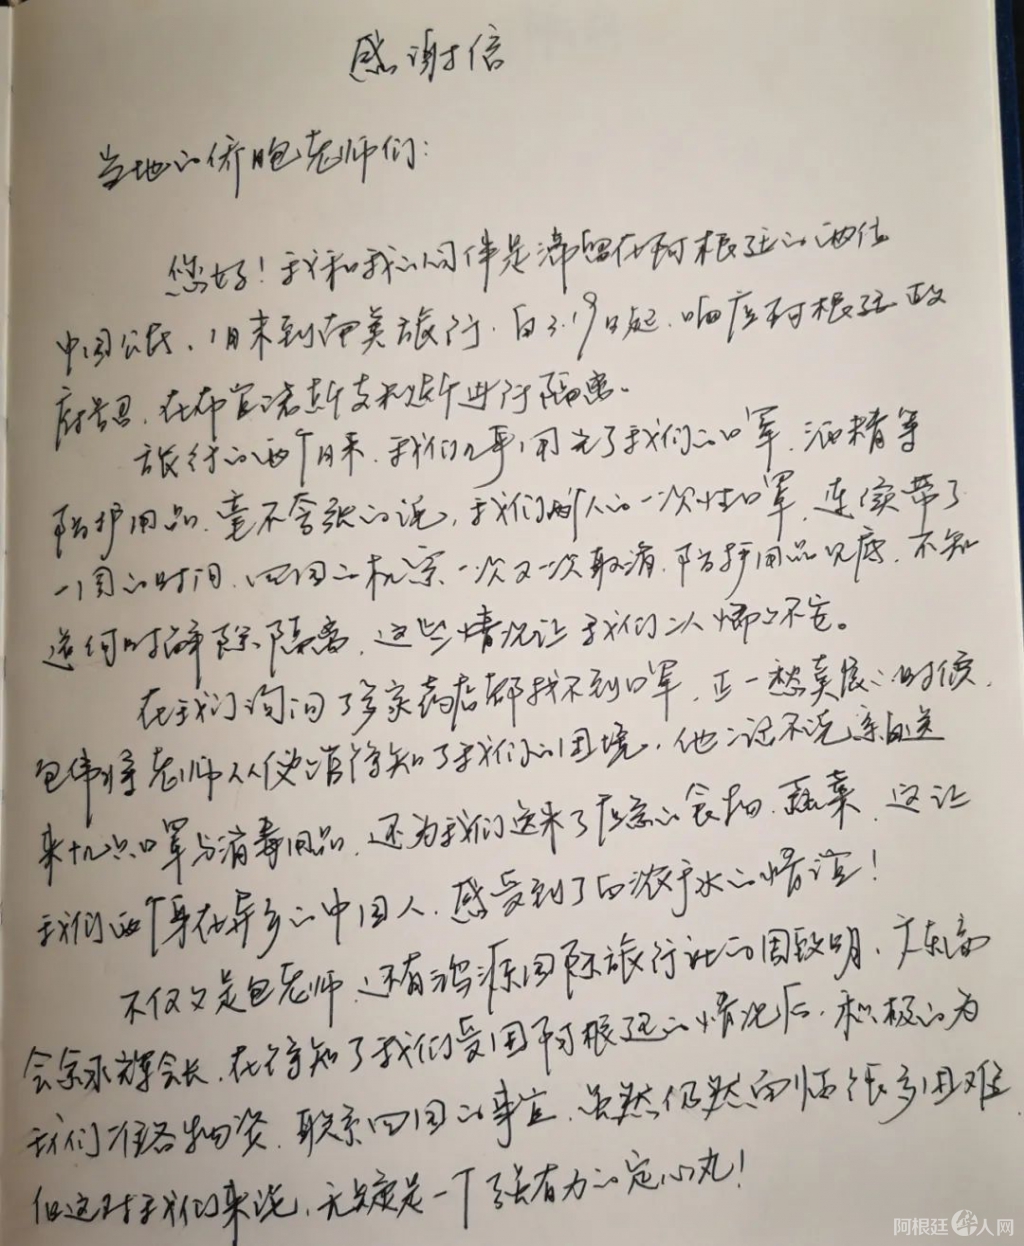 感谢信
当地的侨胞老师们：
您好！我和我的同伴是滞留在阿根廷的两位
中国公民，1月末到南美旅行。自3.19日起，响应阿根廷政
府号召，在布宜诺斯艾利斯进行隔离。
旅行的两个月来，我们几乎用光了我们的口罩，酒精等
防护用品，毫不夸张的说，我们两人的一次性口罩，连续带了
一周的时间，回国的机票一次又一次取消，防护用品见底，不知
道何时解除隔离，这些情况让我们二人惴惴不安。
在我们询问了多家药店都找不到口罩，正一愁莫展的时候，
包伟将老师从使馆得知了我们的困境，他二话不说亲自送
来十几只口罩与消毒用品，还为我们送来了应急的食物，蔬菜，这让
我们两个身在异乡的中国人，感受到了血浓于水的情谊！
不仅仅是包老师，还有鸿源国际旅行社的周致明，广东商
会余永辉会长，在得知了我们受困阿根廷的情况后，积极的为
我们准备物资，联系回国的事宜，虽然仍然面临很多困难，
但这对于我们来说，无疑是一个强有力的定心丸！
阿根廷华人网